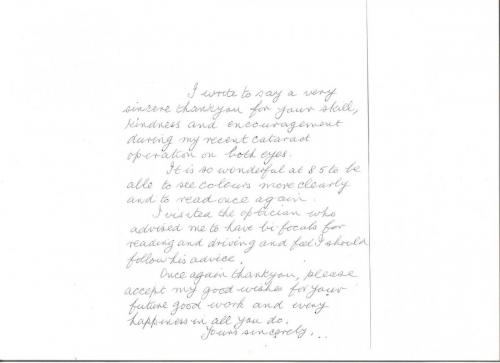 I write to say a very
sincere thankyou for your skill,
kindness and encouragement
during my recent cataract
operation on both eyes.
It is so wonderful at 85 to be
able to see colours more clearly
and to read once again.
I visited the optician who
advised me to have bi focals for
reading and driving and feel I should
follow his advice.
Once again thankyou, please
accept my good wishes for your
future good work and every
happiness in all you do.
Yours sincerely...